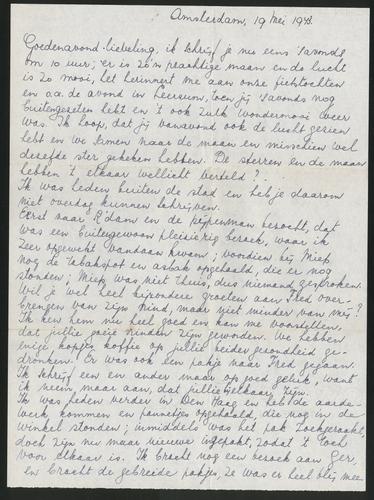 Amsterdam, 19 Mei 194
Goedenavond liebeling, ik schrijf je nu eens 's avonds
om 10 uur; er is zo'n prachtige maan en de lucht
is zo mooi, het herinnert me aan onze fietstochten
en o.a. de avond in Leersum, toen jij 's avonds nog
buitengezeten hebt en 't ook zulk wondermooi weer
was. Ik hoop, dat jij vanavond ook de lucht gezien
hebt en we samen naar de maan en misschien wel
dezelfde ster gekeken hebben. De sterren en de maan
hebben 't elkaar wellicht verteld?
Ik was heden buiten de stad en heb je daarom
niet overdag kunnen schrijven.
Eerst naar R'dam en de pijpenman bezocht, dat
was een buitengewoon pleizierig bezoek, waar ik
zeer opgewekt vandaan kwam; voordien bij Miep
nog de tabakspot en asbak opgehaald, die er nog
stonden; Miep was niet thuis, dus niemand gesproken.
Wil je wel heel bijzondere groeten aan Fred over-
brengen van zijn vriend, maar niet minder van mij?
Ik ken hem nu heel goed en kan me voorstellen,
dat jullie goede vrienden zijn geworden. We hebben
enige kopjes koffie op jullie beider gezondheid ge-
dronken. Er was ook een pakje naar Fred gegaan.
Ik schrijf een en ander maar op goed geluk, want
ik neem maar aan, dat jullie bij elkaar zijn.
Ik was heden verder in Den Haag en heb de aarde-
werk kommen en pannetjes opgehaald, die nog in de
winkel stonden; inmiddels was het pak zoekgeraakt,
doch zijn nu maar nieuwe ingepakt, zodat 't toch
voor elkaar is. Ik bracht nog een bezoek aan Ger,
en bracht de gebreide pakjes, ze was er heel blij mee